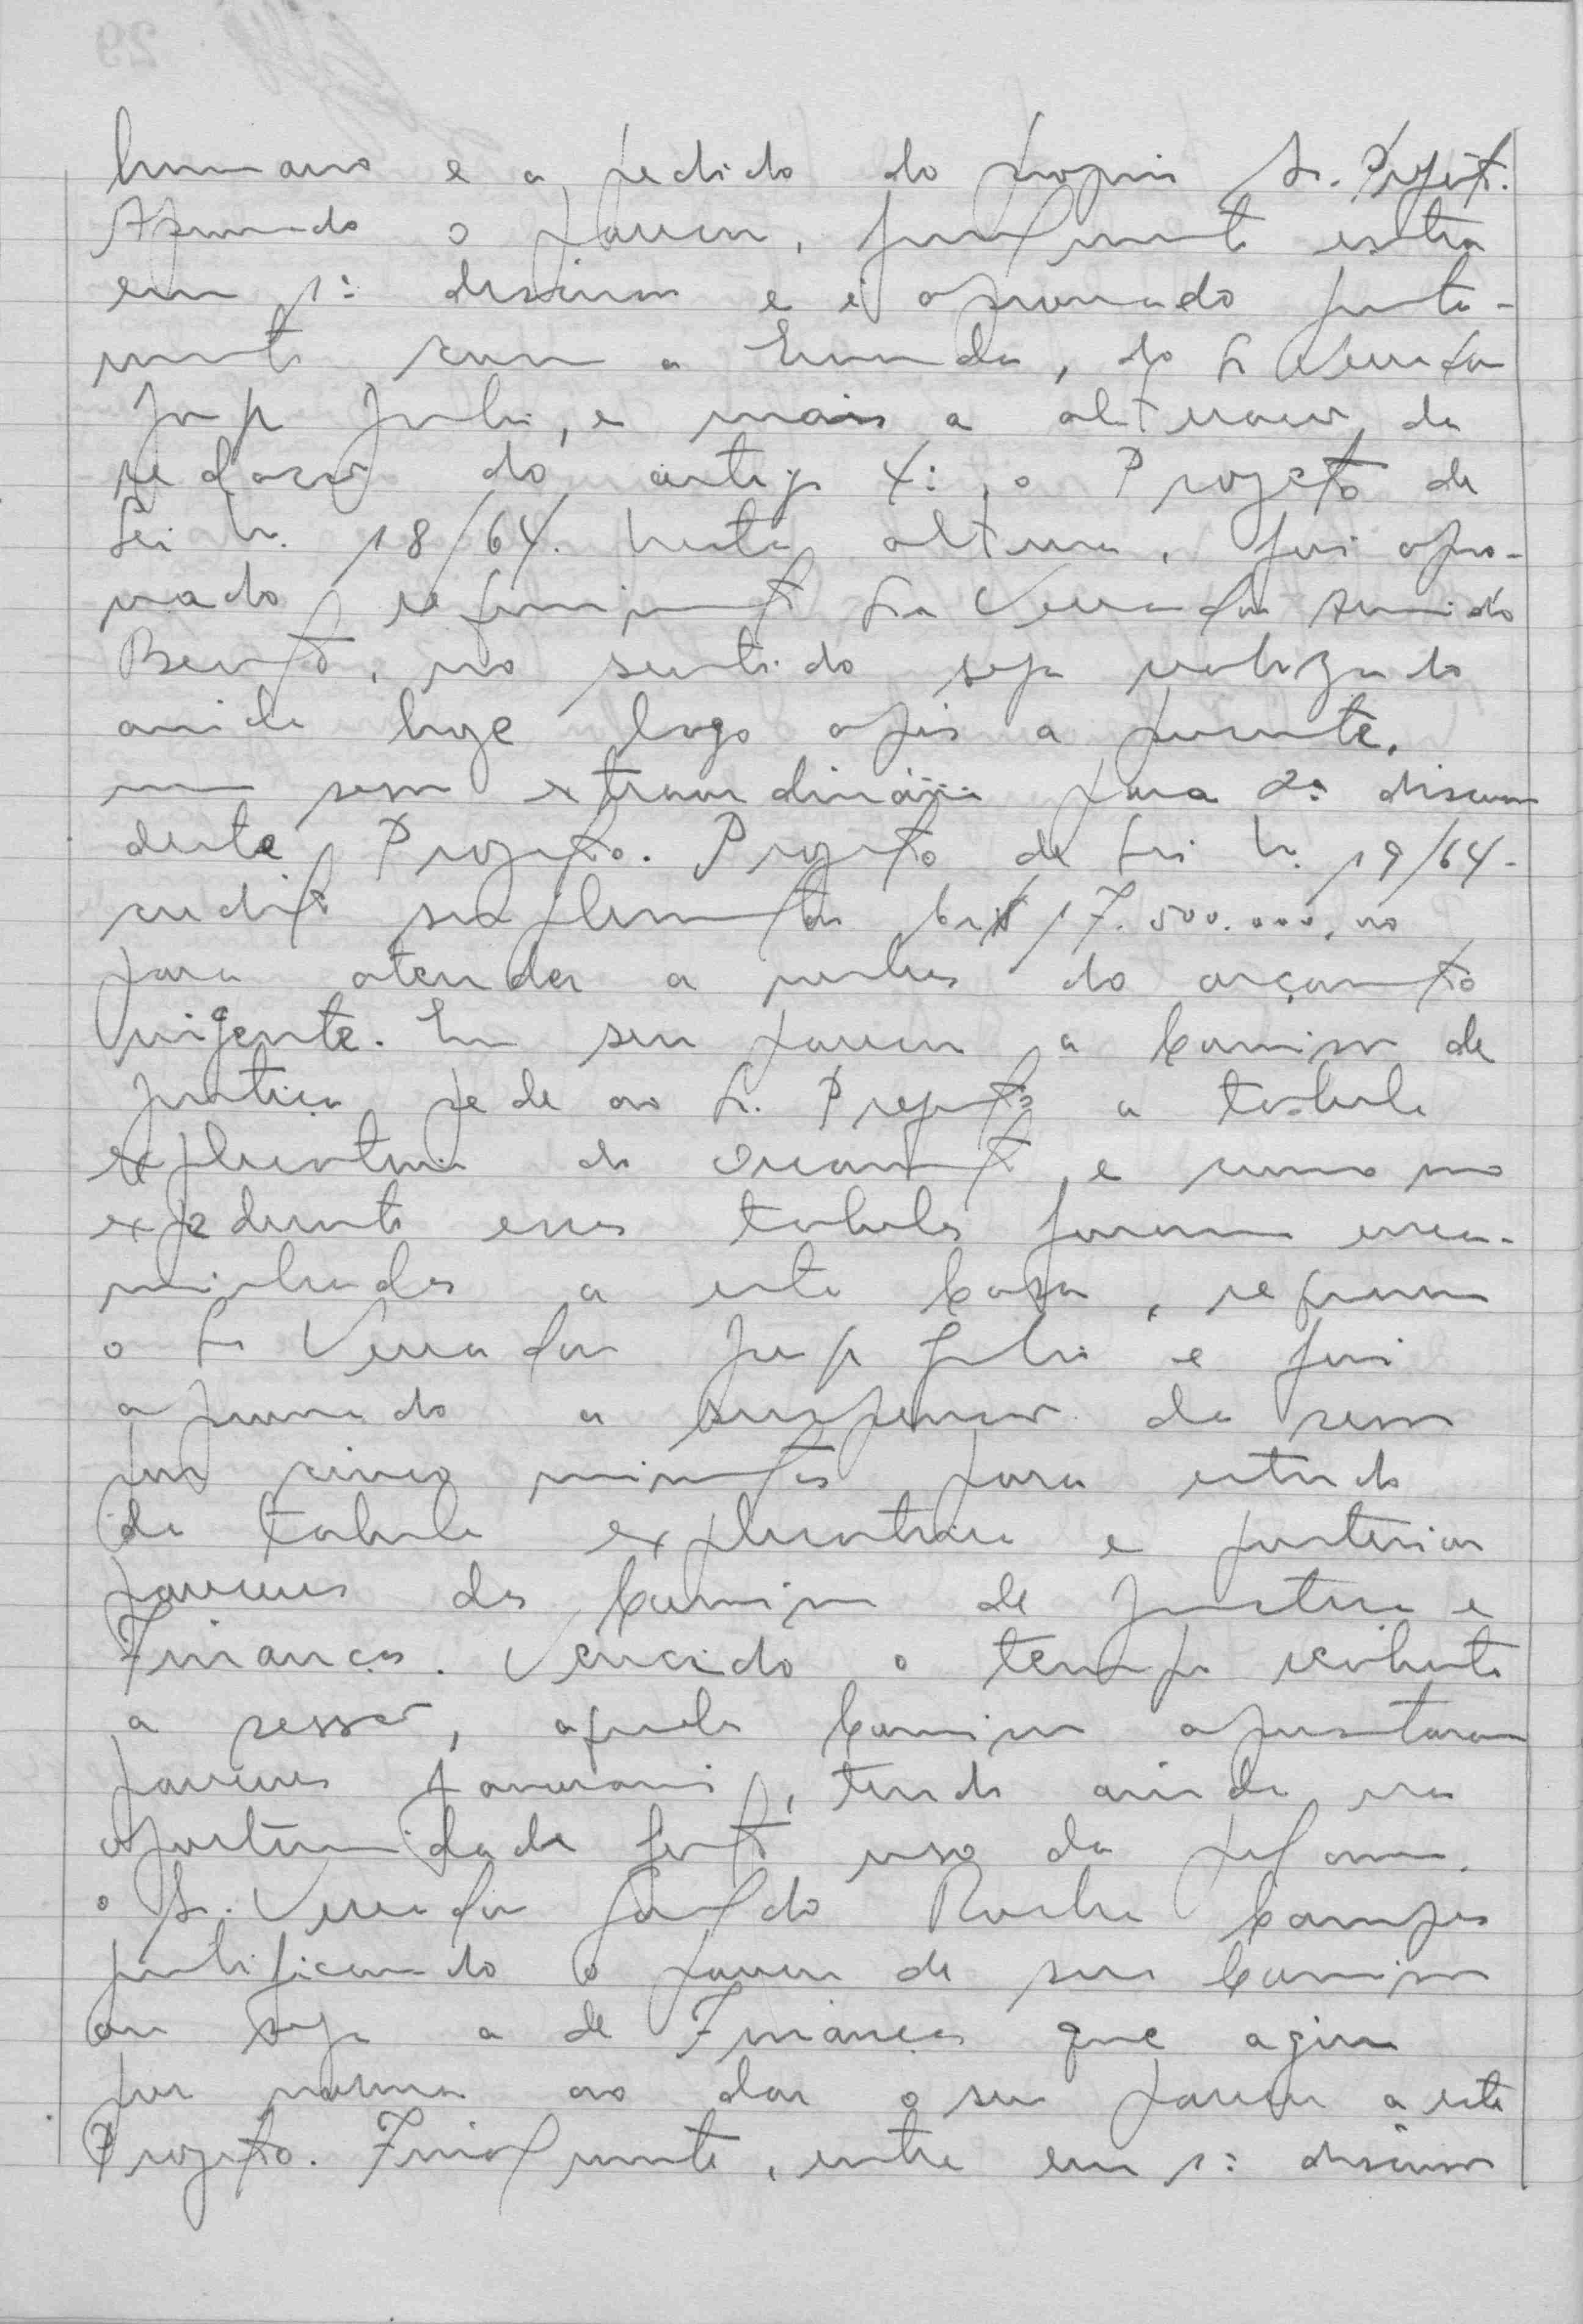 humano e a pedido do proprio Sr. Prefeit.
Aprovado o parecer, finalmente entra
em 1ª discussão e é aprovado junta-
mente com a Emenda, do Sr Vereador
José Julio, e mais a alteração da
redação do artigo 4º, o Projeto de
Lei n. 18/64. Nesta altura, foi apro-
vado requerimento Sr Vereador
Bento, no sentido seja realizado
ainda hoje logo após a presente,
uma sessão extraordinária para 2ª discussão
deste Projeto. Projeto de Lei n. 19/64 -
credito suplementar Cr$ 17.500.000,00
para atender a verbas do orçamento
vigente. Em seu parecer a Comissão de
Justiça pede ao Sr. Prefeito a tabela
explicativa do Orçamento, e como no
expediente essas tabelas foram enca-
minhadas a esta Casa, requereu
o Sr Vereador José Julio e foi
aprovado a suspensão da sessão
por cinco minutos para estudo
da tabela explicativa e posterior
pareceres das Comissão de Justiça e
Finanças. Vencido o tempo reaberta
a sessão, aquela Comissão apresentaram
pareceres favoravel, tendo ainda na
oportunidade feito uso da palavra,
o Sr. Vereador Geraldo Rocha Campos
justificando o parecer de sua Comissão
ou seja a de Finanças que agiu
por norma ao dar o seu parecer a este
Projeto. Finalmente, entra em 1ª discussão